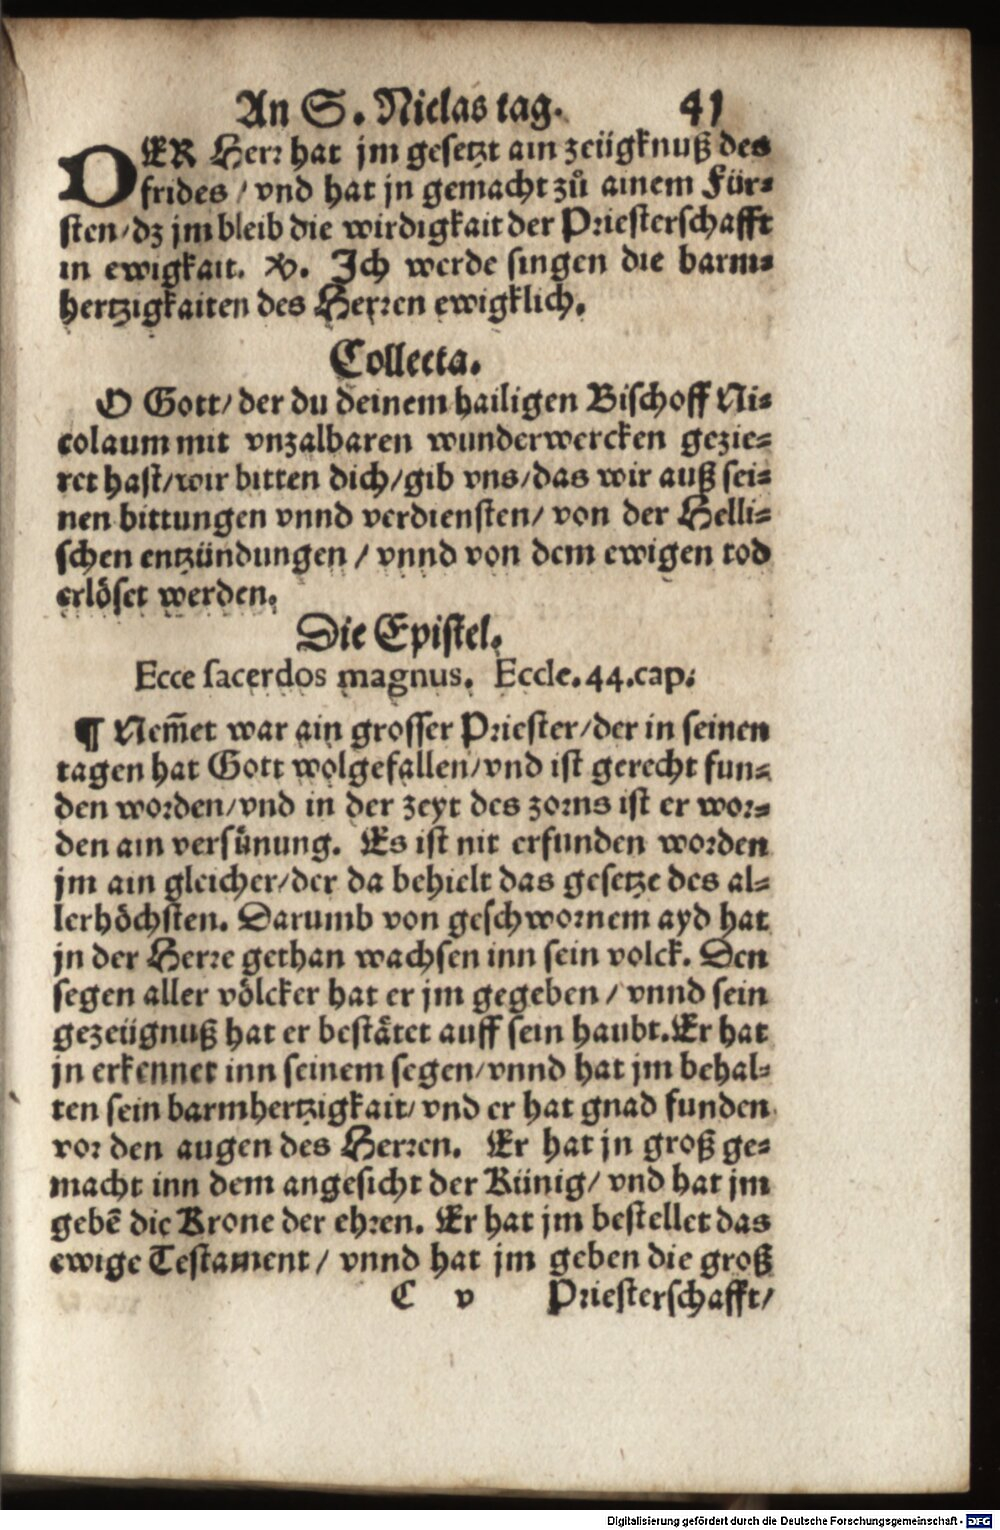 An S. Niclas tag. 41
DER Herr hat jm gesetzt ain zeügknuß des
frides / vnd hat jn gemacht zů ainem Für⸗
sten / dz jm bleib die wirdigkait der Priesterschafft
in ewigkait. ℣. Ich werde singen die barm⸗
hertzigkaiten des Herren ewigklich.
Collecta.
O Gott / der du deinem hailigen Bischoff Ni⸗
colaum mit vnzalbaren wunderwercken gezie⸗
ret hast / wir bitten dich / gib vns / das wir auß sei⸗
nen bittungen vnnd verdiensten / von der Helli⸗
schen entzündungen / vnnd von dem ewigen tod
erlöset werden.
Die Epistel.
Ecce sacerdos magnus. Eccle. 44. cap.
¶ Nem̃et war ain grosser Priester / der in seinen
tagen hat Gott wolgefallen / vnd ist gerecht fun⸗
den worden / vnd in der zeyt des zorns ist er wor⸗
den ain versünung. Es ist nit erfunden worden
jm ain gleicher / der da behielt das gesetze des al⸗
lerhöchsten. Darumb von geschwornem ayd hat
jn der Herre gethan wachsen inn sein volck. Den
segen aller völcker hat er jm gegeben / vnnd sein
gezeügnuß hat er bestätet auff sein haubt. Er hat
jn erkennet inn seinem segen / vnnd hat jm behal⸗
ten sein barmhertzigkait / vnd er hat gnad funden
vor den augen des Herren. Er hat jn groß ge⸗
macht inn dem angesicht der Künig / vnd hat jm
gebẽ die Krone der ehren. Er hat jm bestellet das
ewige Testament / vnnd hat jm geben die groß
C v Priesterschafft /
Digitalisierung gefördert durch die Deutsche Forschungsgemeinschaft - DFG